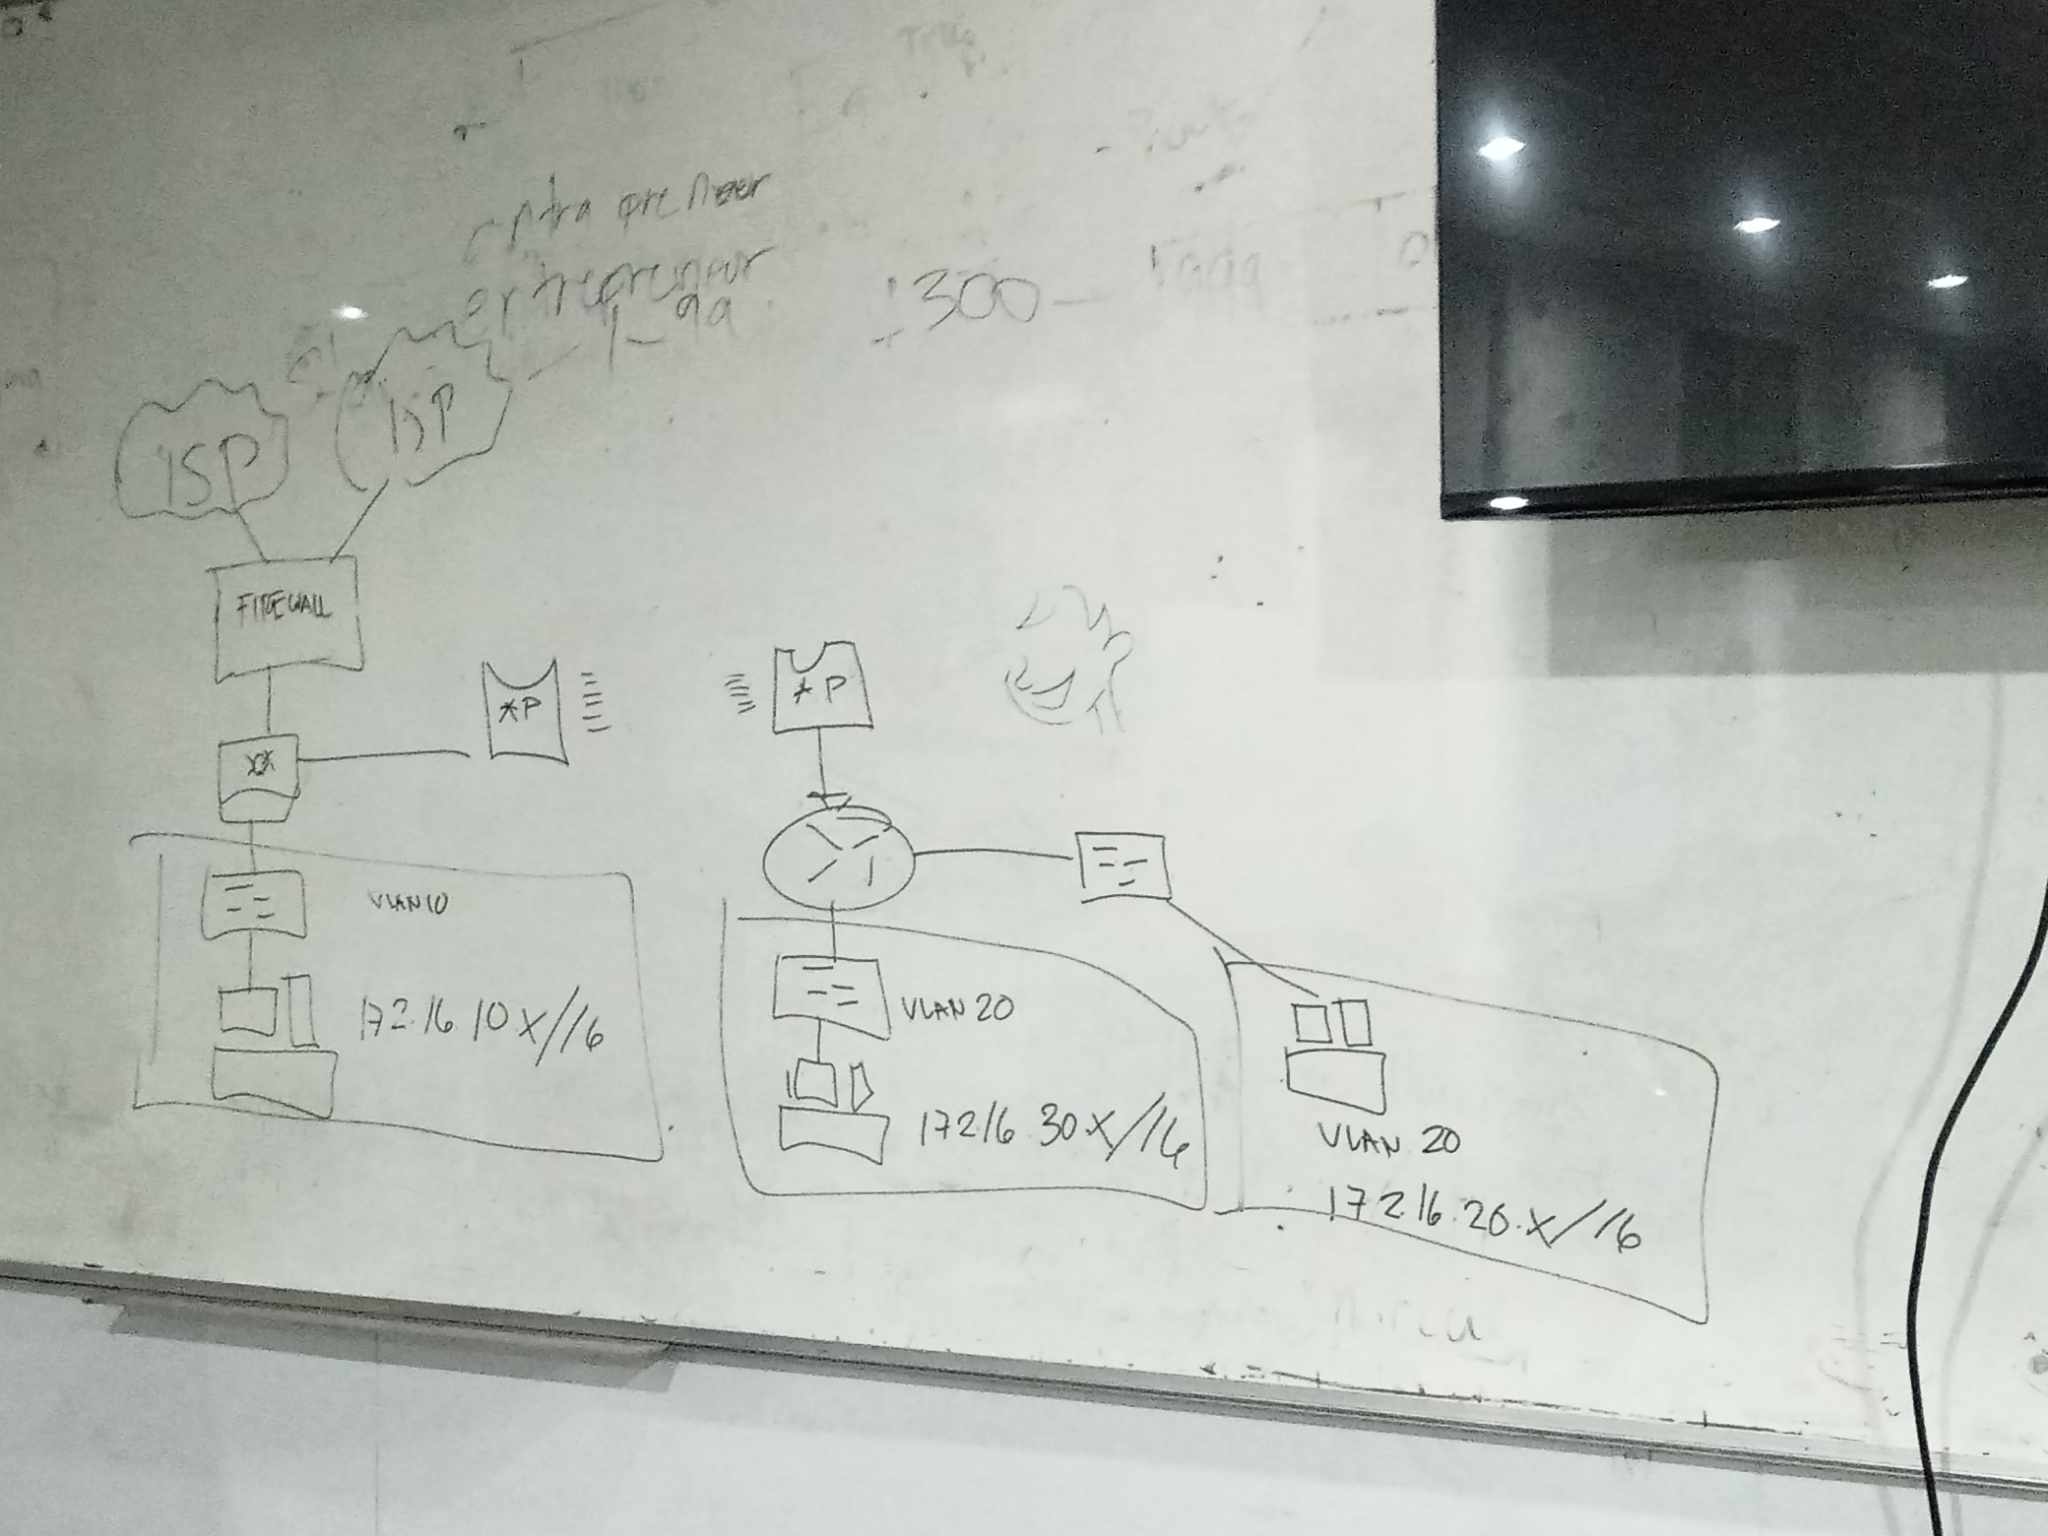 entrepreneur
1-99
300
ISP
ISP
FIREWALL
AP
AP
VLAN 10
172.16 10 X//16
VLAN 20
172 16 30 X/16
VLAN 20
172 16.20.X/16